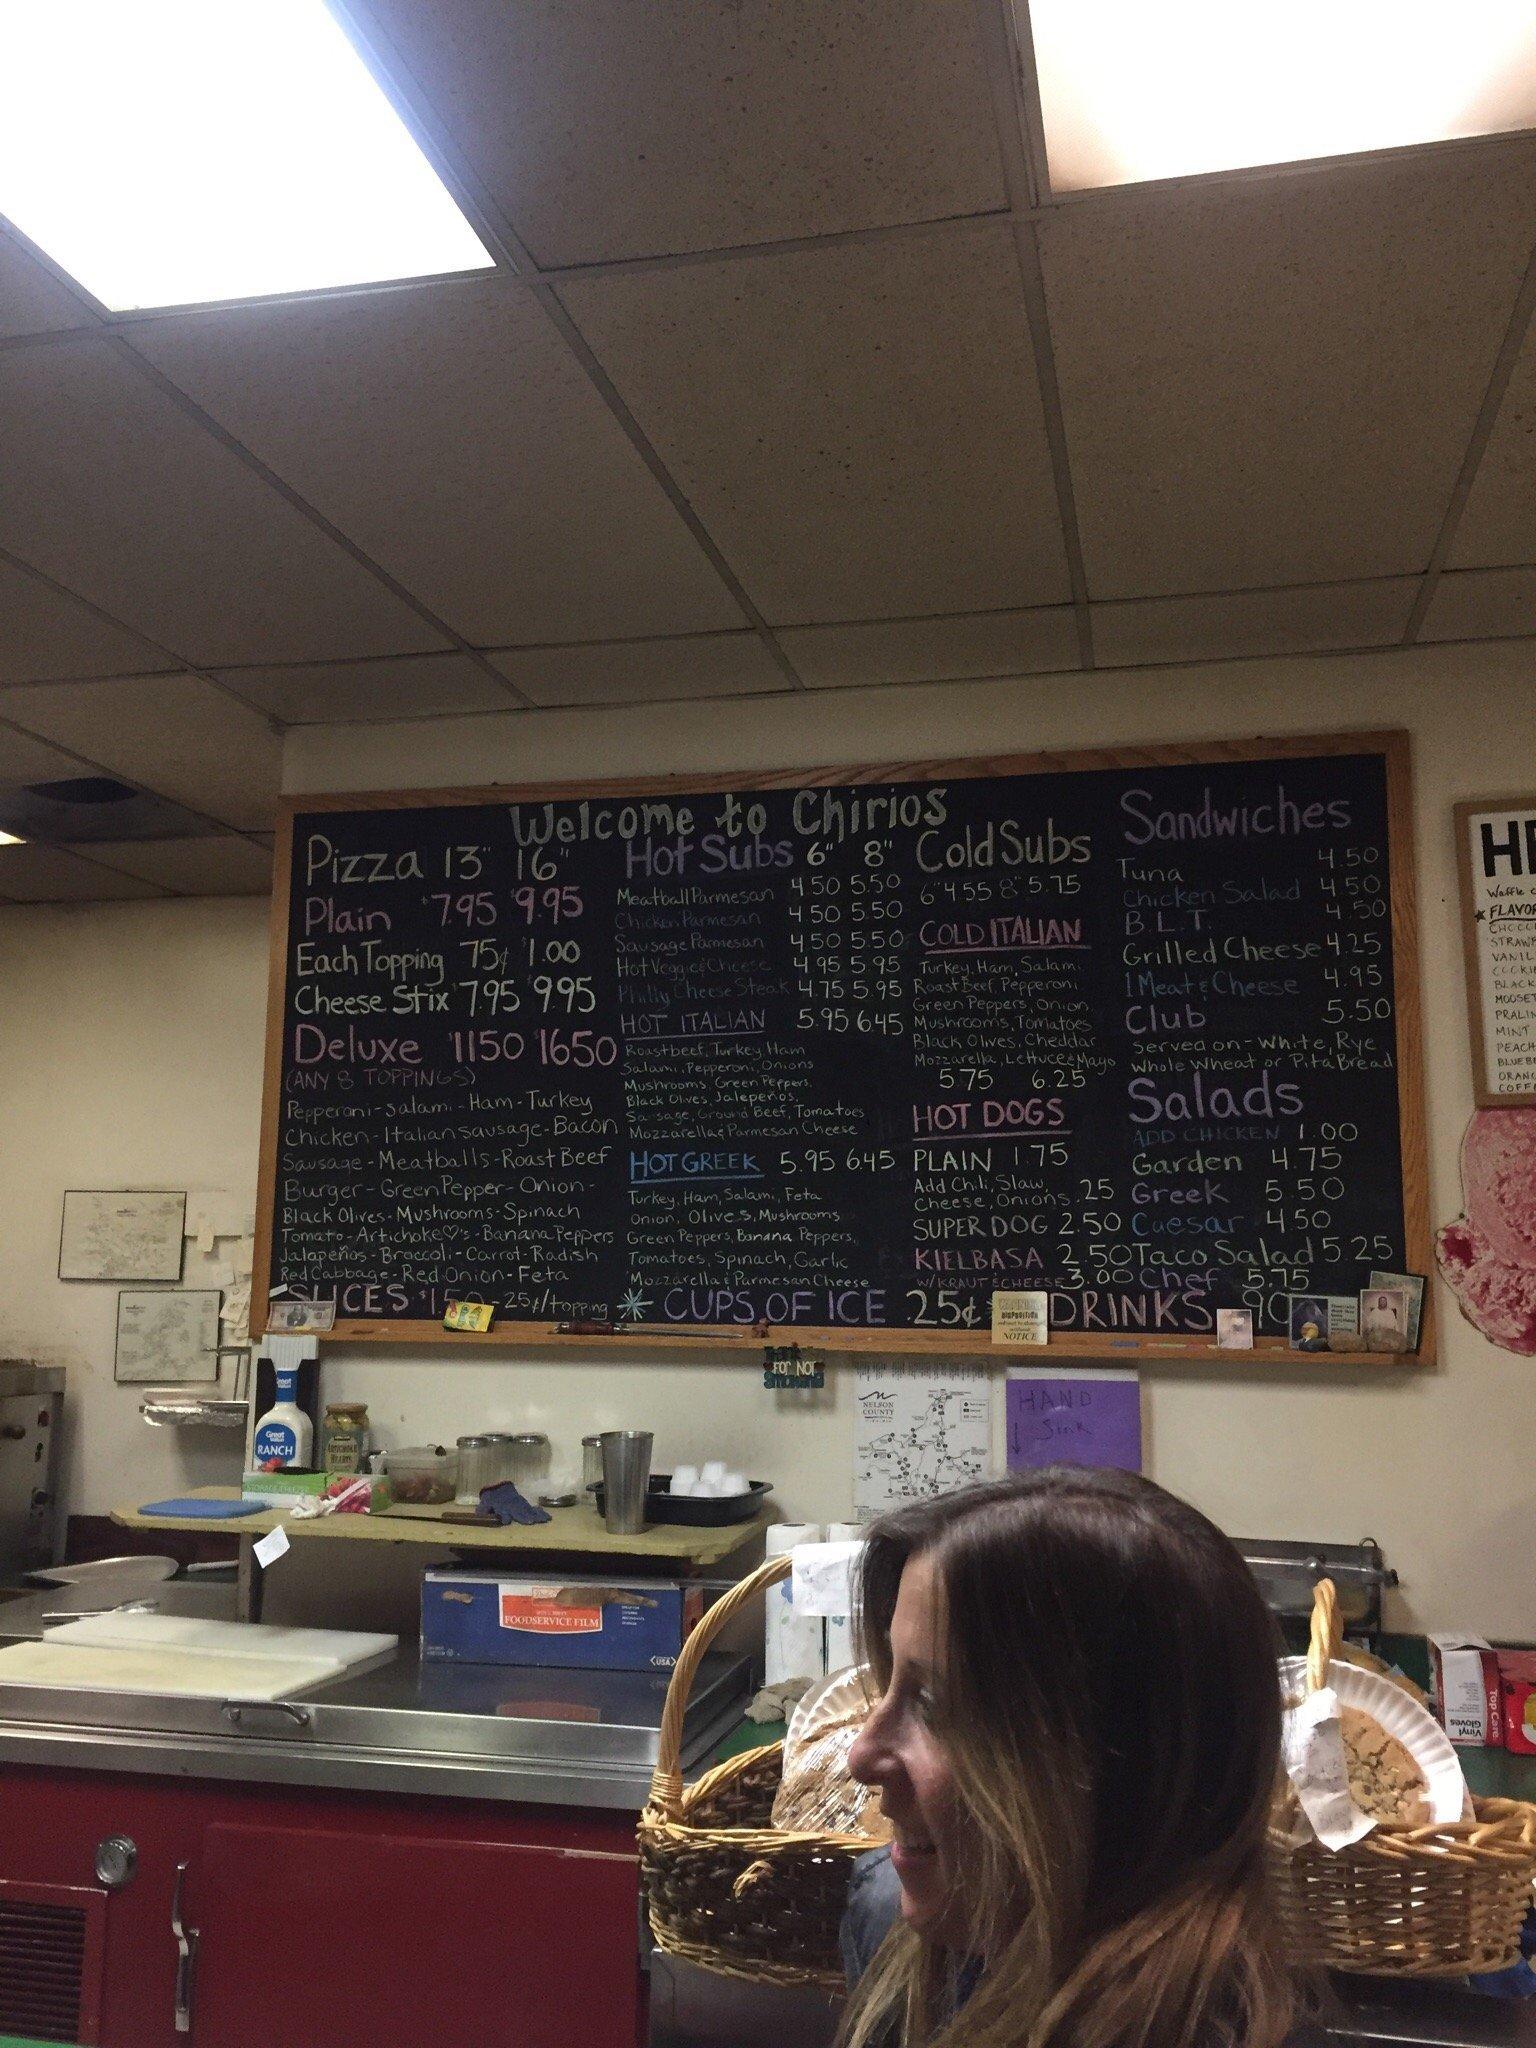 Welcome to Chirios
Pizza 13" 16"
Plain $7.95 $9.95
Each Topping 75¢ $1.00
Cheese Stix $7.95 9.95
Deluxe $1150 $1650
(ANY 8 TOPPINGS)
Pepperoni-Salami-Ham-Turkey
Chicken-Italian Sausage-Bacon
Sausage-Meatballs-Roast Beef
Burger-Green Pepper-Onion-
Black Olives-Mushrooms-Spinach
Tomato-Artichoke♡'s-Banana Peppers
Jalapeños-Broccoli-Carrot-Radish
Red Cabbage-Red Onion-Feta
SLICES $1.50-25¢/topping
Hot Subs 6" 8"
Meatball Parmesan 4 50 5.50
Chicken Parmesan 4 50 5.50
Sausage Parmesan 4 50 5.50
Hot Veggie & Cheese 4 95 5.95
Philly Cheese Steak 4.75 5.95
HOT ITALIAN 5.95 6.45
Roastbeef, Turkey, Ham
Salami, Pepperoni, Onions
Mushrooms, Green Peppers,
Black Olives, Jalepeños,
Sausage, Ground Beef, Tomatoes
Mozzarella & Parmesan Cheese
HOT GREEK 5.95 6.45
Turkey, Ham, Salami, Feta
Onion, Olives, Mushrooms
Green Peppers, Banana Peppers,
Tomatoes, Spinach, Garlic
Mozzarella & Parmesan Cheese
CUPS OF ICE .25¢
Cold Subs
6" 4 55 8" 5.75
COLD ITALIAN
Turkey, Ham, Salami
Roast Beef, Pepperoni
Green Peppers, Onion
Mushrooms, Tomatoes
Black Olives, Cheddar
Mozzarella, Lettuce & Mayo
5 75 6.25
HOT DOGS
PLAIN 1.75
Add Chili, Slaw,
Cheese, Onions .25
SUPER DOG 2.50
KIELBASA 2.50
W/KRAUT & CHEESE 3.00
Sandwiches
Tuna 4.50
Chicken Salad 4.50
B.L.T. 4.50
Grilled Cheese 4.25
1 Meat & Cheese 4.95
Club 5.50
Served on-White, Rye
Whole Wheat or Pita Bread
Salads
ADD CHICKEN 1.00
Garden 4.75
Greek 5.50
Caesar 4.50
Taco Salad 5.25
Chef 5.75
DRINKS 90
NOTICE
FOR NOT
NELSON
COUNTY
HAND
Sink
Great
Value
RANCH
ARTICHOKE
HEARTS
FOODSERVICE FILM
USA
Top Care
Vinyl
Gloves
Waffle
FLAVOR
VANIL
BLACK
MOOSE
PRALIN
MINT
PEACH
BLUEB
ORANG
COFF